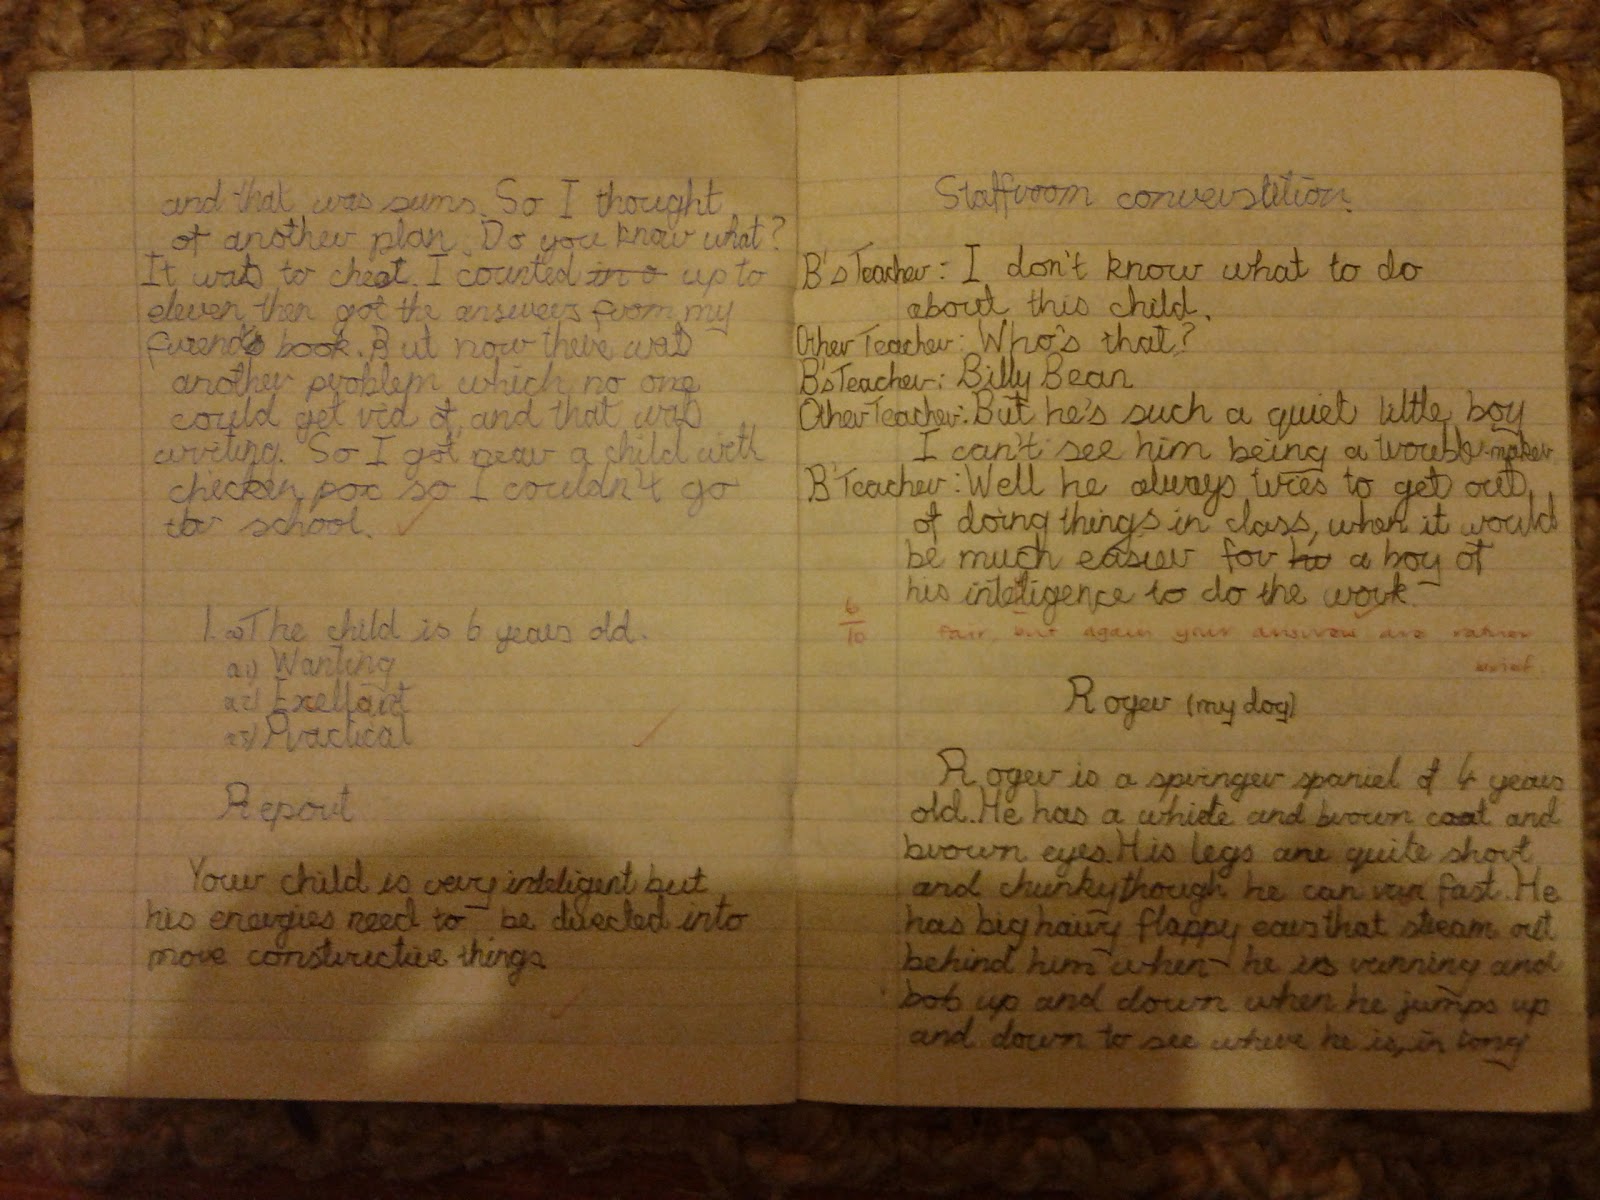 and that was sums. So I thought
of another plan. Do you know what?
It was to cheat. I counted in o up to
eleven then got the answers from my
frirend's book. But now there was
another problem which no one
could get rid of, and that was
writing. So I got near a child with
chicken pox so I couldn't go
to school.
1. a) The child is 6 years old.
a1) Wanting
a2) Exellant
a3) Practical
Report
Your child is very inteligent but
his energies need to be directed into
more constructive things.
Staffroom converstition.
B's Teacher: I don't know what to do
about this child.
Other Teacher: Who's that?
B's Teacher: Billy Bean
Other Teacher: But he's such a quiet little boy
I can't see him being a trouble-maker
B'Teacher: Well he always tries to get out
of doing things in class, when it would
be much easier for ho a boy of
his inteligence to do the work
6/10 fair, but again your answers are rather
brief.
Roger (my dog)
Roger is a springer spaniel of 4 years
old. He has a white and brown coat and
brown eyes. His legs are quite short
and chunky though he can run fast. He
has big hairy flappy ears that stream out
behind him when he is running and
bob up and down when he jumps up
and down to see where he is, in long